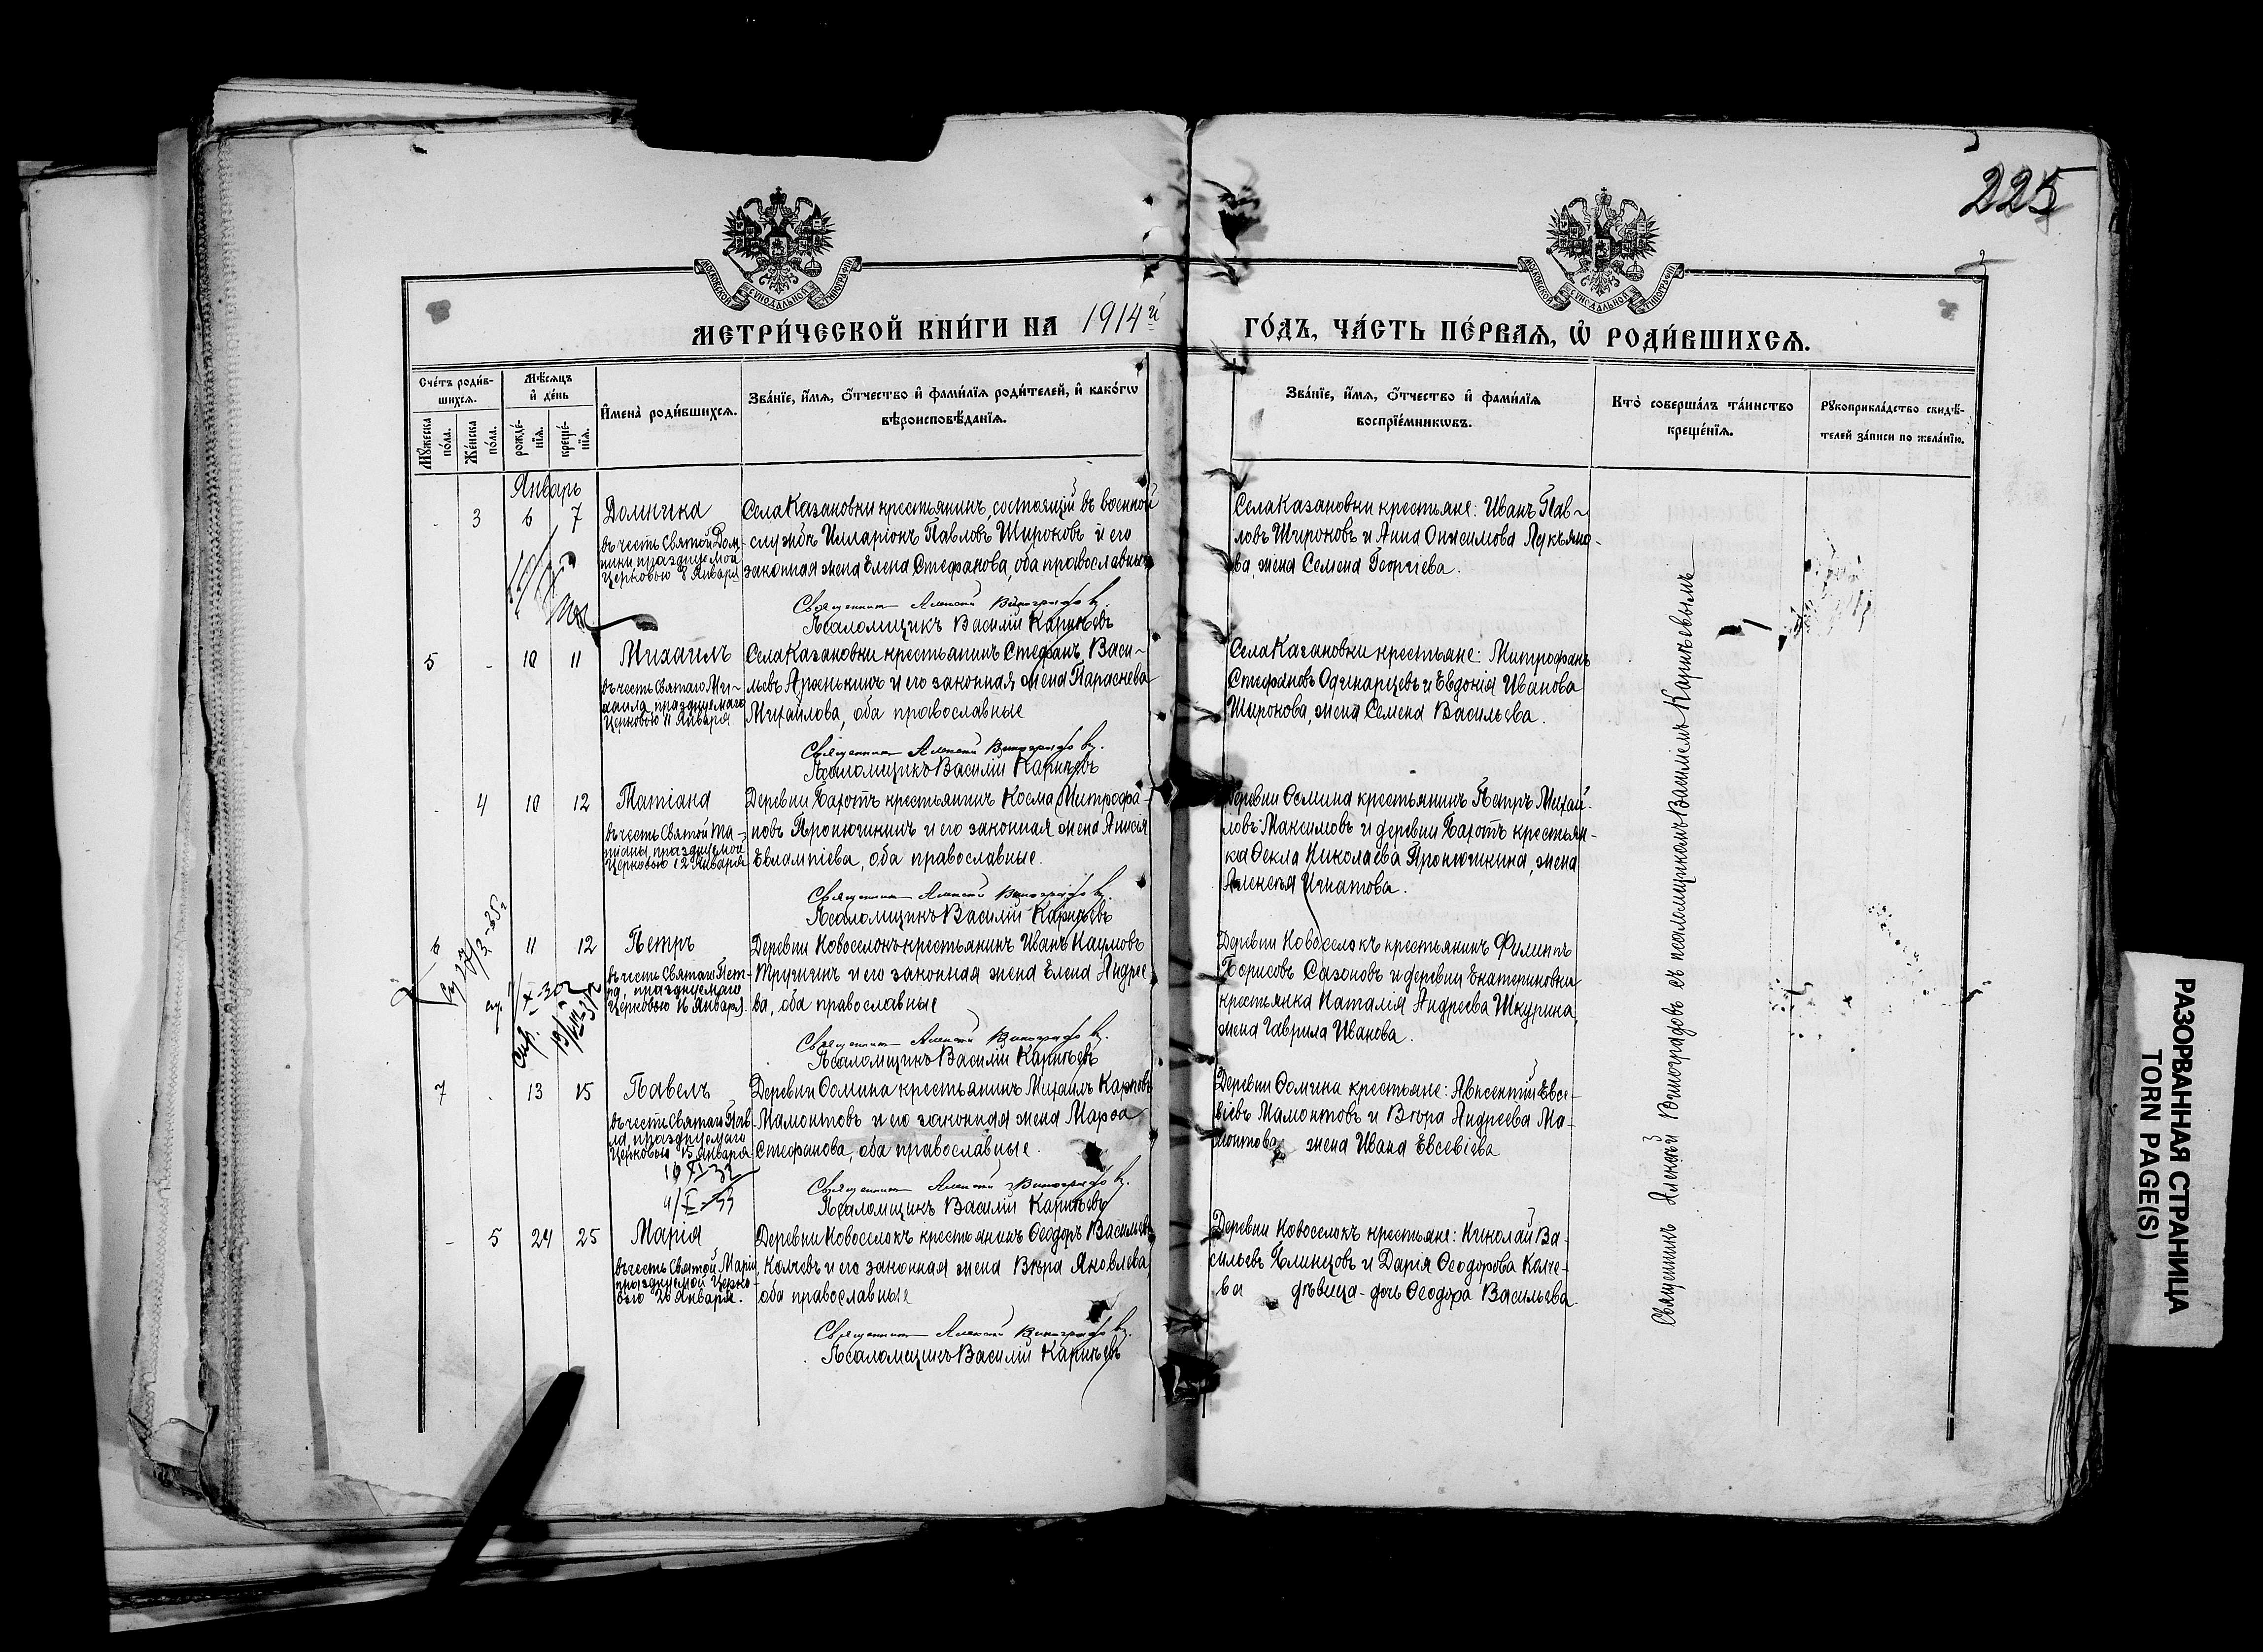 225
2
МОСКОВСКОЙ СѴНОДАЛЬНОЙ ТИПОГРАФІИ
МОСКОВСКОЙ СѴНОДАЛЬНОЙ ТИПОГРАФІИ
МЕТРИ́ЧЕСКОЙ КНИ́ГИ НА 1914й ГО́ДЪ, ЧА́СТЬ ПЕ́РВАЯ, Ѡ҆ РОДИ́ВШИХСѦ.
Сче́тъ роди́в-
шихсѧ.
Мꙋ́жеска
по́ла.
Же́нска
по́ла.
Мѣ́сѧцъ
и҆ де́нь
рожде́-
нїѧ.
креще́-
нїѧ.
И҆мена̀ роди́вшихсѧ.
Зва́нїе, и҆́мѧ, ѻ҆́тчество и҆ фами́лїѧ роди́телей, и҆ како́гѡ
вѣроисповѣ́данїѧ.
Зва́нїе, и҆́мѧ, ѻ҆́тчество и҆ фами́лїѧ
воспрїе́мникѡвъ.
Кто̀ соверша́лъ та́инство
креще́нїѧ.
Рꙋкоприкла́дство свидѣ́-
телей за́писи по жела́нїю.
Январь
- 3 6 7 Домника
въ честь Святой Дом-
ники празднуемой
Церковью 8 Января
Села Казановки крестьянинъ, состоящій въ военной
службѣ Илларіонъ Павловъ Широковъ и его
законная жена Елена Стефанова, оба православные
Священник Алексей Виноградов
Псаломщикъ Василій Каринѣевъ
Села Казановки крестьяне: Иванъ Пав-
ловъ Широковъ и Анна Онисимова Лукъяно-
ва, жена Семена Георгіева.
5 - 10 11 Михаилъ
въ честь Святаго Ми-
хаила празднуемаго
Церковью 11 Января
Села Казановки крестьянинъ Стефанъ Васи-
льевъ Аронькинъ и его законная жена Параскева
Михайлова, оба православные
Священник Алексей Виноградов
Псаломщикъ Василій Каринѣевъ
Села Казановки крестьяне: Митрофанъ
Стефановъ Одинарцевъ и Евдокія Иванова
Широкова, жена Семена Васильева.
- 4 10 12 Татіана
въ честь Святой Та-
тіаны, празднуемой
Церковью 12 Января
Деревни Бахотъ крестьянинъ Косма Митрофа-
новъ Пронюшкинъ и его законная жена Анисія
Евлампіева, оба православные.
Священник Алексей Виноградов
Псаломщикъ Василій Каринѣевъ
Деревни Осмина крестьянинъ Петръ Михай-
ловъ Максимовъ и деревни Бахотъ крестьян-
ка Ѳекла Николаева Пронюшкина, жена
Алексѣя Игнатова.
6 - 11 12 Петръ
въ честь Святаго Пет-
ра, празднуемаго
Церковью 16 Января.
Деревни Новоселокъ крестьянинъ Иванъ Наумовъ
Трушинъ и его законная жена Елена Андрее-
ва, оба православные
Священник Алексей Виноградов
Псаломщикъ Василій Каринѣевъ
Деревни Новоселокъ крестьянинъ Филиппъ
Борисовъ Сазоновъ и деревни Екатериновки
крестьянка Наталія Андреева Шкурина,
жена Гаврила Иванова.
7 - 13 15 Павелъ
въ честь Святаго Пав-
ла, празднуемаго
Церковью 15 Января
Деревни Осмина крестьянинъ Михаилъ Карповъ
Мамонтовъ и его законная жена Марѳа
Стефанова, оба православные.
Священник Алексей Виноградов
Псаломщикъ Василій Каринѣевъ
Деревни Осмина крестьяне: Авксентій Евсе-
віевъ Мамонтовъ и Вѣра Андреева Ма-
монтова, жена Ивана Евсевіева
- 5 24 25 Марія
въ честь Святой Маріи,
празднуемой Церко-
вью 26 Января.
Деревни Новоселокъ крестьянинъ Ѳеодоръ Васильевъ
Колчевъ и его законная жена Вѣра Яковлева,
оба православные
Священник Алексей Виноградов
Псаломщикъ Василій Каринѣевъ
Деревни Новоселокъ крестьяне: Николай Ва-
сильевъ Хлынцовъ и Дарія Ѳеодорова Колче-
ва дѣвица-дочь Ѳеодора Васильева.
Священникъ Алексѣй Виноградовъ съ псаломщикомъ Василіемъ Каринѣевымъ
РАЗОРВАННАЯ СТРАНИЦА
TORN PAGE(S)